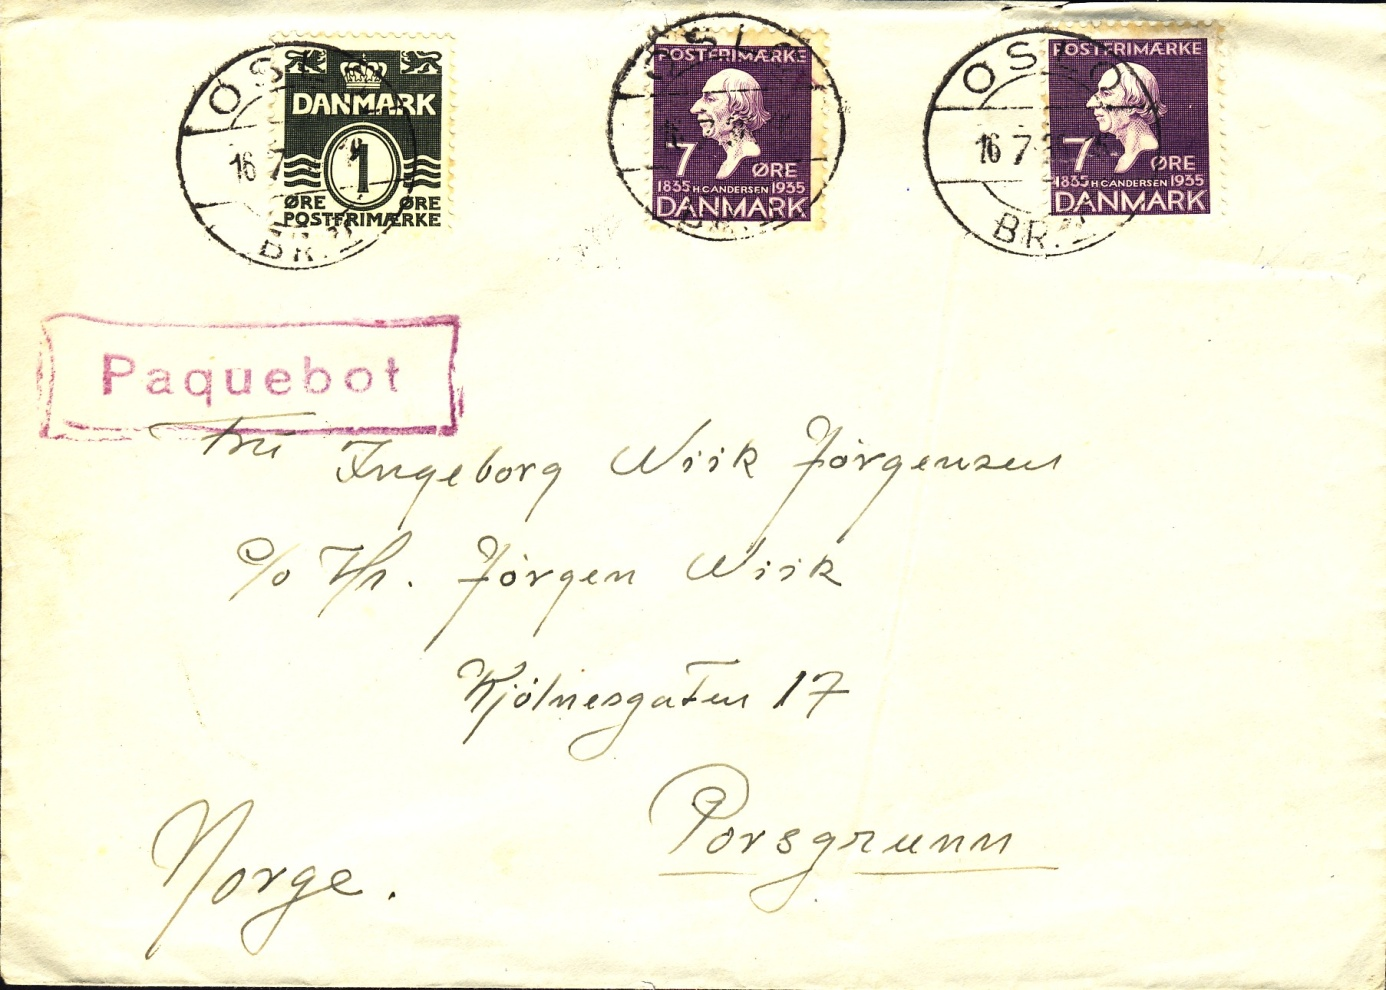 DANMARK
1
ØRE ØRE
POSTFRIMÆRKE
OSLO
16 7
BR.
POSTFRIMÆRKE
7 ØRE
1835 H.C.ANDERSEN 1935
DANMARK
OSLO
BR.
POSTFRIMÆRKE
7 ØRE
1835 H.C.ANDERSEN 1935
DANMARK
OSLO
16 7
BR.
Paquebot
Fru Ingeborg Wiik Jørgensen
c/o Hr. Jørgen Wiik
Kjölnesgaten 17
Porsgrunn
Norge.